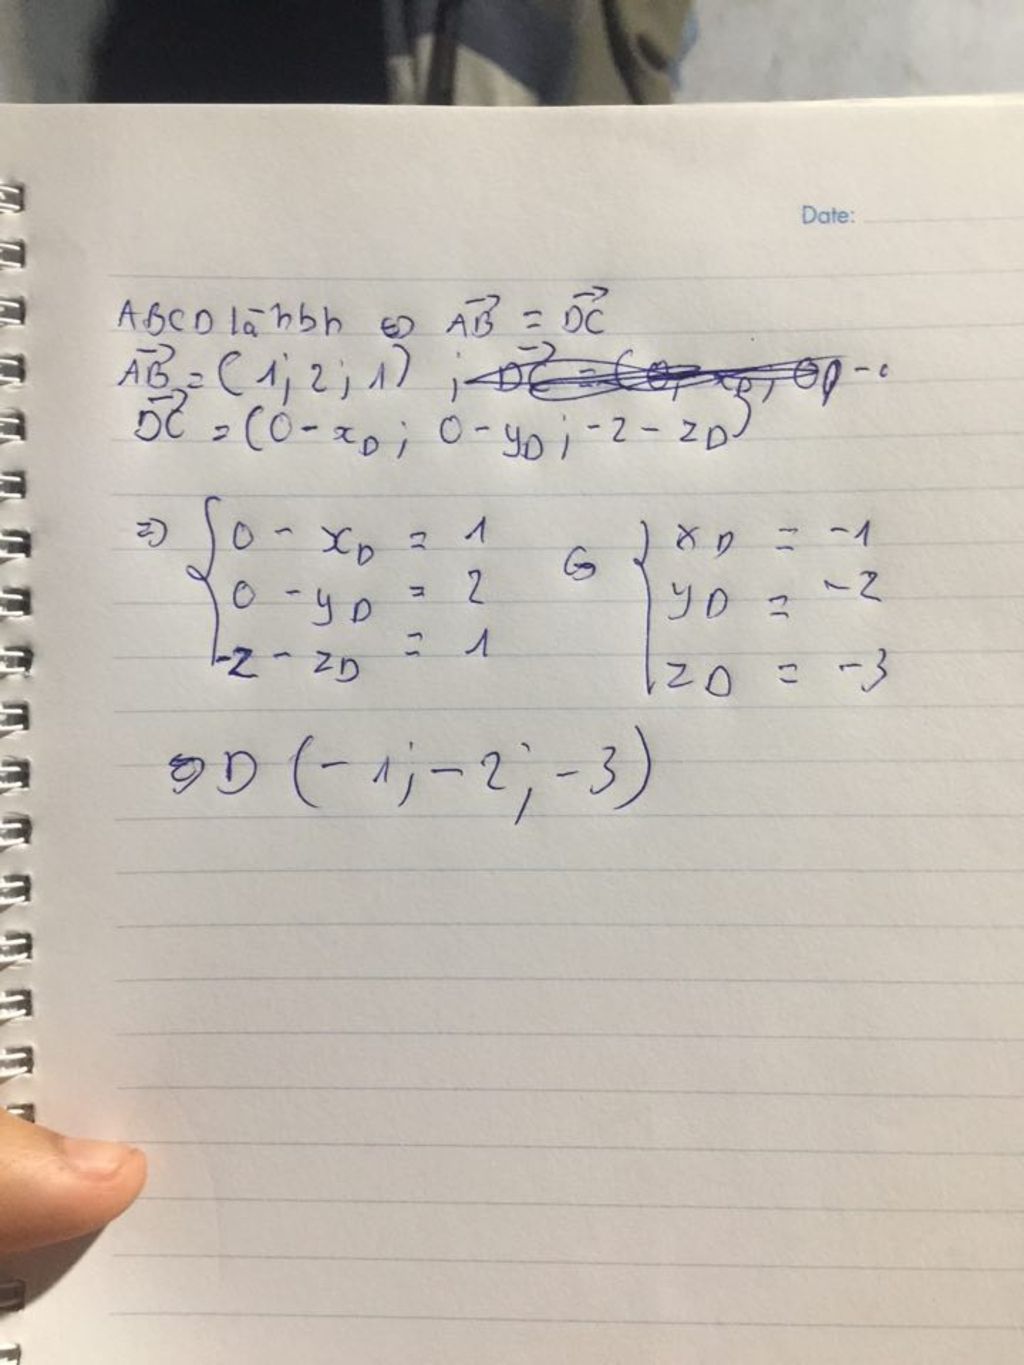 Date:
ABCD là hbh ⇔ $\overrightarrow{AB}$ = $\overrightarrow{DC}$
$\overrightarrow{AB}$ = (1; 2; 1) ;
$\overrightarrow{DC}$ = (0 - x_D ; 0 - y_D ; -2 - z_D)
⇒ { 0 - x_D = 1 ⇔ { x_D = -1
0 - y_D = 2 y_D = -2
-2 - z_D = 1 z_D = -3
⇒ D (-1; -2; -3)